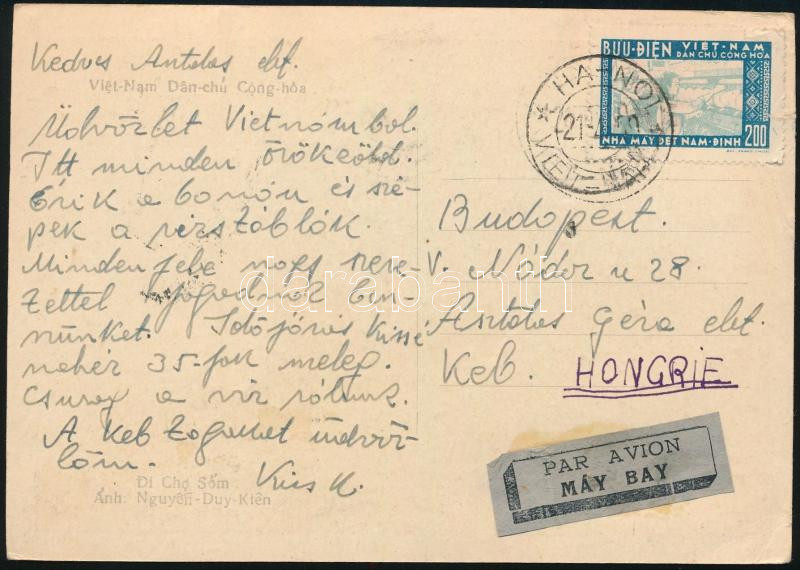 Kedves Antalas elt.
Việt-Nam Dân-chủ Cộng-hòa
Üdvözlet Vietnámból.
Itt minden örökzöld.
Érik a banán és szé-
pek a rizstáblák.
Minden fele nagy szere-
tettel fogadnak ben-
nünket. Időjárás kissé
nehéz 35-fok meleg.
Csurog a víz rólunk.
A Keb tagokat üdvöz-
löm.
Kiss K.
Đi Chợ Sớm
Ảnh: Nguyễn-Duy-Kiên
BƯU-ĐIỆN VIỆT-NAM
DÂN CHỦ CỘNG HÒA
NHÀ MÁY DỆT NAM-ĐỊNH 200
HA-NOI
VIET-NAM
Budapest.
V. Nádor u 28.
Asztalos Géza elt.
Keb. HONGRIE
PAR AVION
MÁY BAY
darabanth